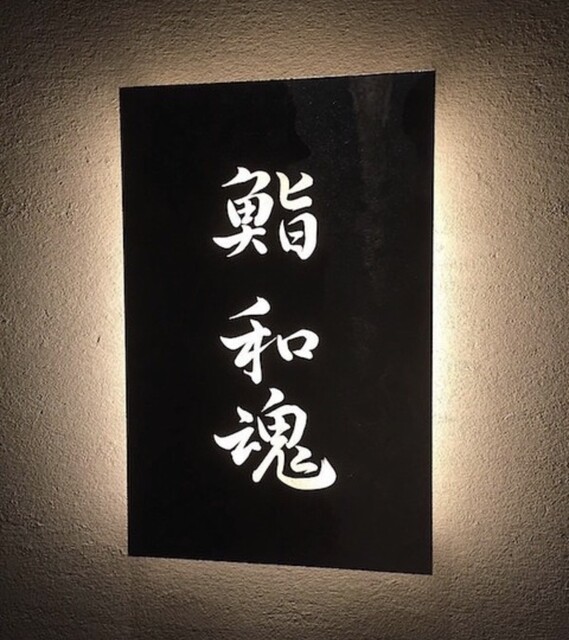 鮨 和魂